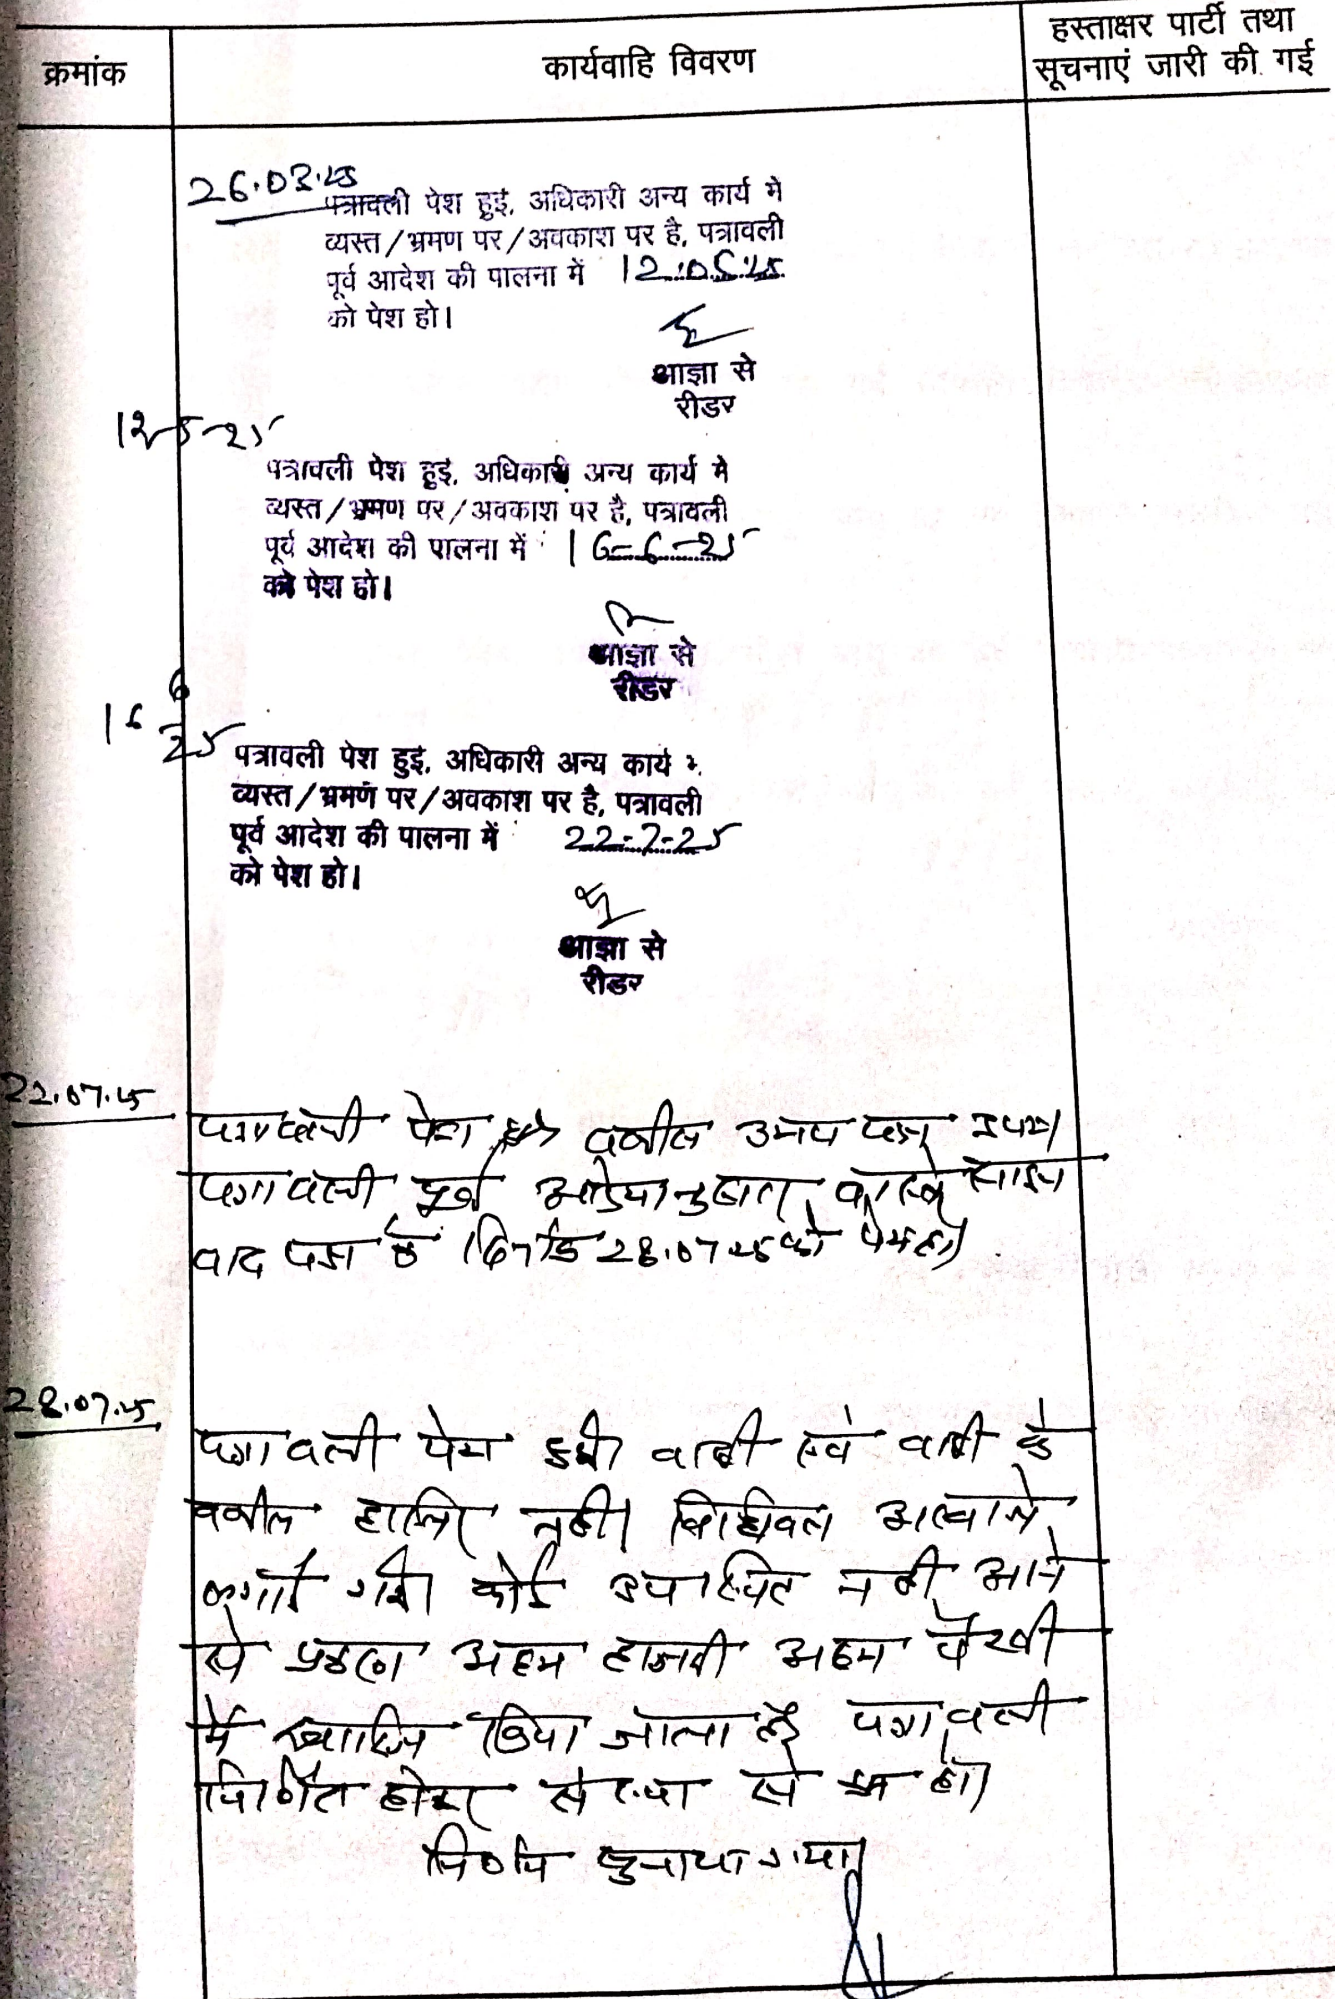 क्रमांक
कार्यवाहि विवरण
हस्ताक्षर पार्टी तथा
सूचनाएं जारी की गई
26.03.25
पत्रावली पेश हुई, अधिकारी अन्य कार्य मे
व्यस्त/भ्रमण पर/अवकाश पर है, पत्रावली
पूर्व आदेश की पालना में 12.05.25
को पेश हो।
आज्ञा से
रीडर
12-5-25
पत्रावली पेश हुई, अधिकारी अन्य कार्य मे
व्यस्त/भ्रमण पर/अवकाश पर है, पत्रावली
पूर्व आदेश की पालना में 16-6-25
को पेश हो।
आज्ञा से
रीडर
16 6 25
पत्रावली पेश हुई, अधिकारी अन्य कार्य
व्यस्त/भ्रमण पर/अवकाश पर है, पत्रावली
पूर्व आदेश की पालना में 22-7-25
को पेश हो।
आज्ञा से
रीडर
22.07.25
पत्रावली पेश वकील उभय पक्ष
पत्रावली पूर्व आदेशानुसार वास्ते साक्ष्य
वाद पक्ष के दिनांक 28.07.25 को पेश हो।
28.07.25
पत्रावली पेश हुई वादी एवं वादी के
वकील हाजिर नहीं। विधिवत आवाजे
लगाई गई। कोई उपस्थित नहीं आने
से प्रकरण अदम हाजरी अदम पैरवी
में खारिज किया जाता है। पत्रावली
निर्णित होकर संख्या से कम हो।
निर्णय सुनाया गया।